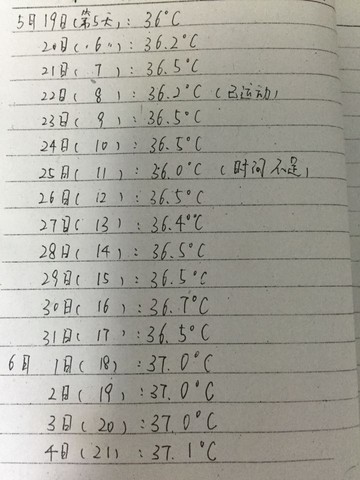 5月19日(第5天): 36°C
20日(.6"): 36.2°C
21日(7): 36.5°C
22日(8): 36.2°C (已运动)
23日(9): 36.5°C
24日(10): 36.5°C
25日(11): 36.0°C (时间不足)
26日(12): 36.5°C
27日(13): 36.4°C
28日(14): 36.5°C
29日(15): 36.5°C
30日(16): 36.7°C
31日(17): 36.5°C
6月 1日(18): 37.0°C
2日(19): 37.0°C
3日(20): 37.0°C
4日(21): 37.1°C